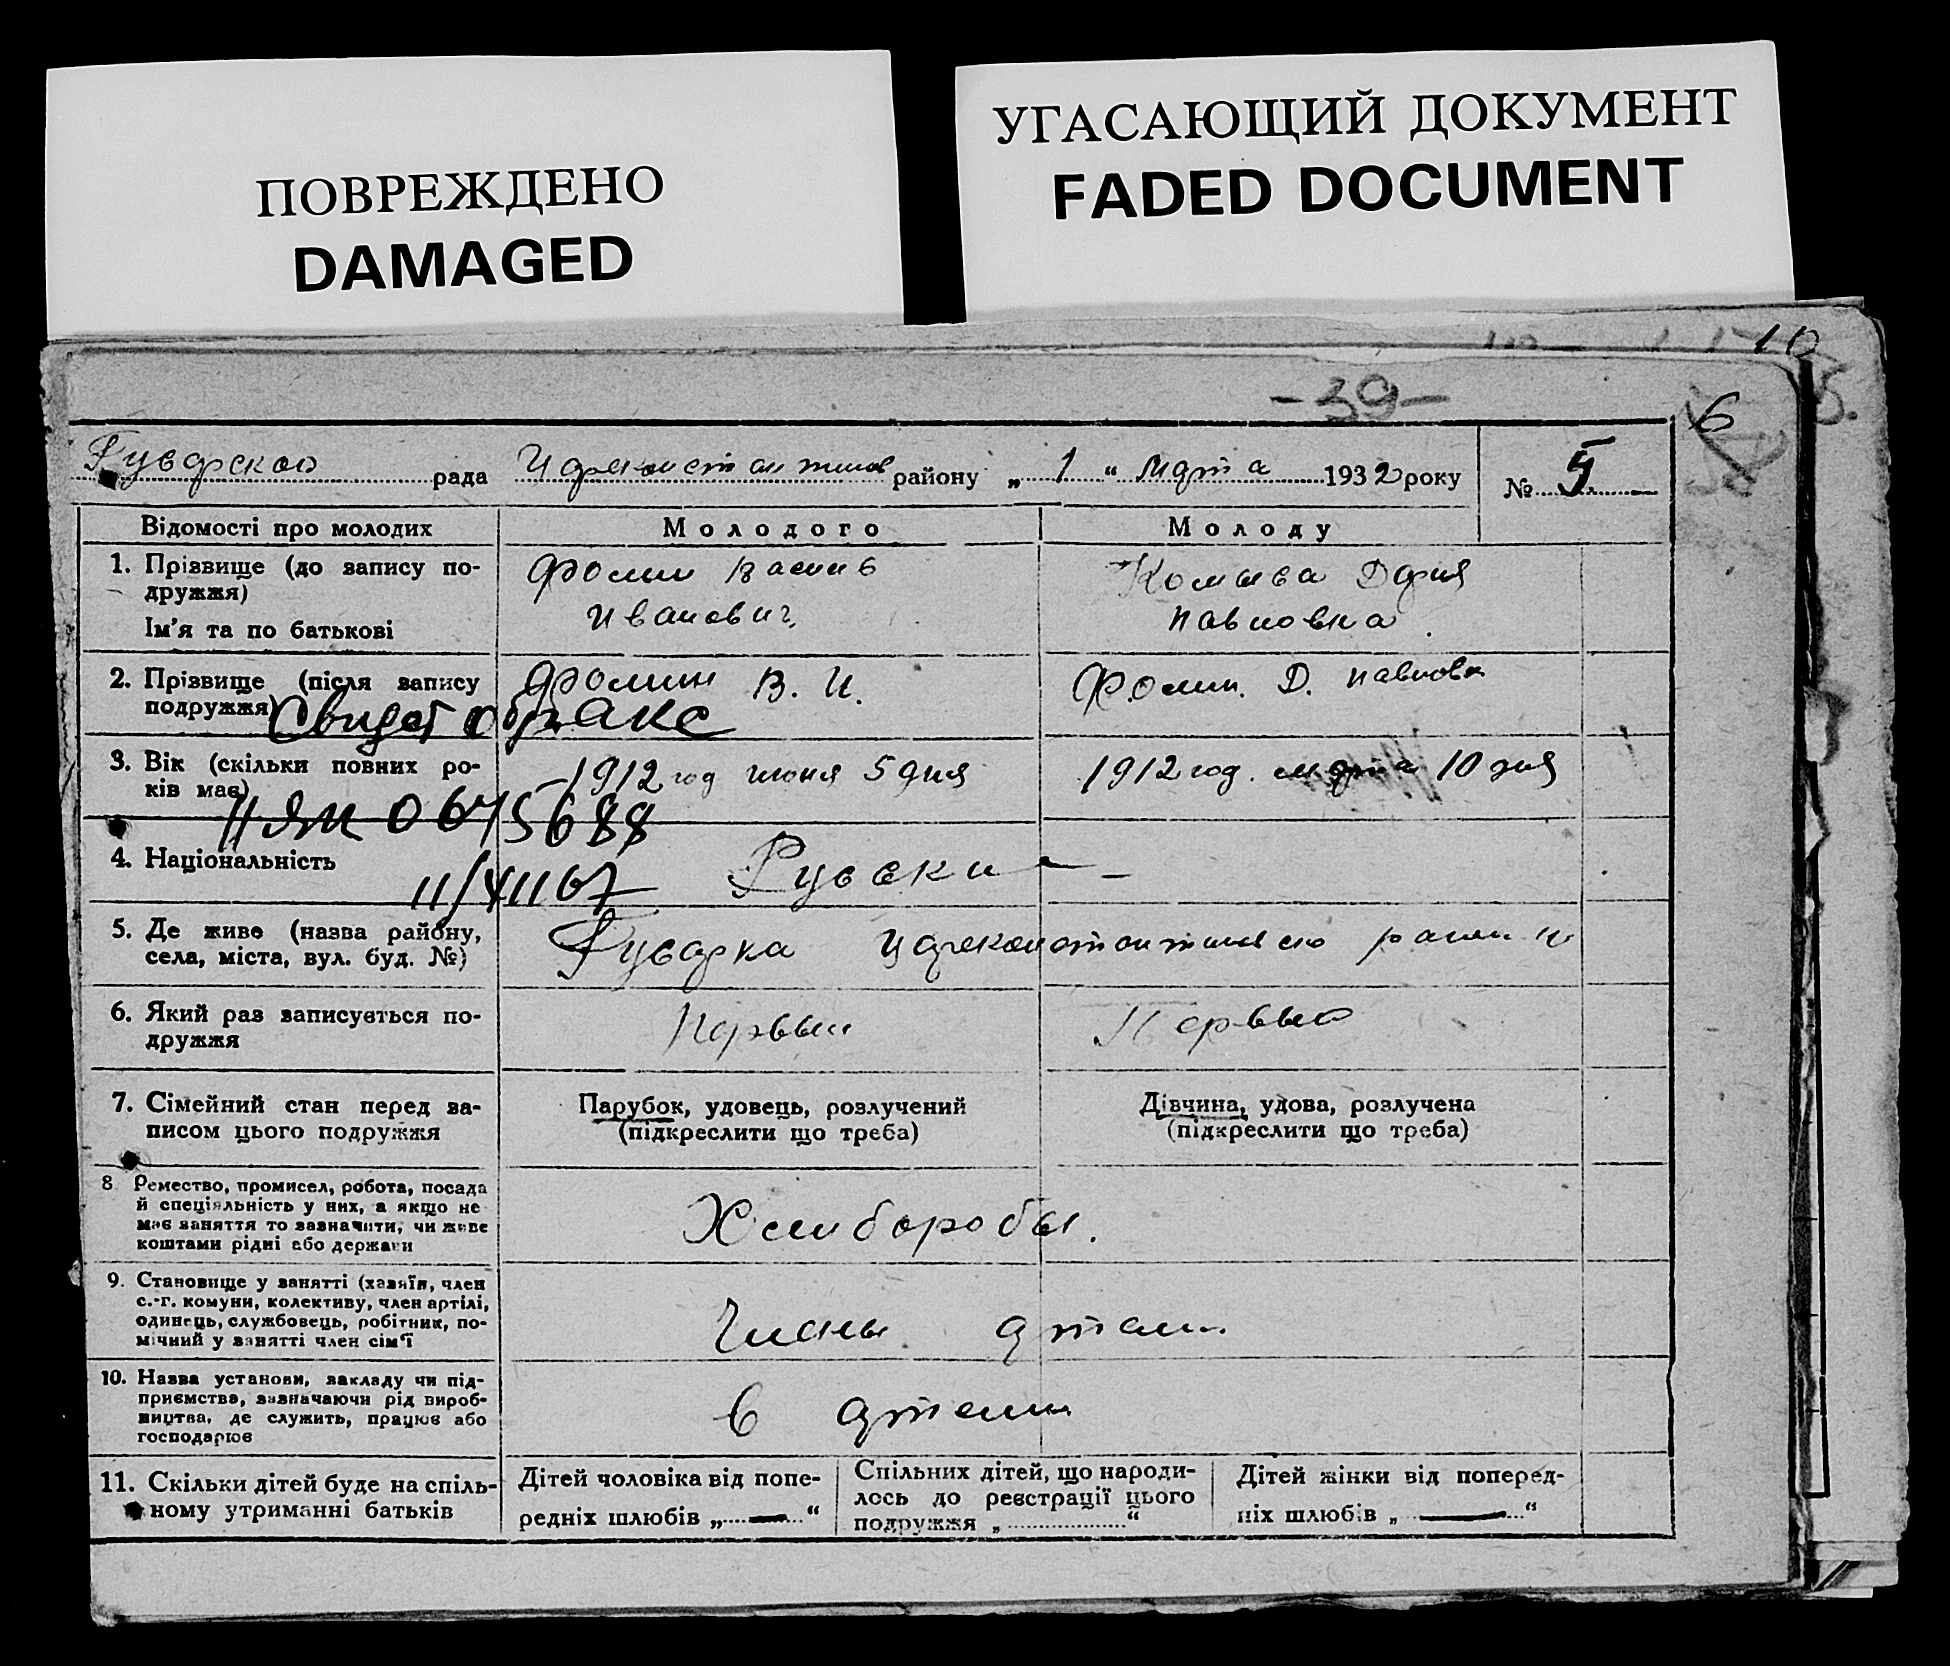 ПОВРЕЖДЕНО
DAMAGED
УГАСАЮЩИЙ ДОКУМЕНТ
FADED DOCUMENT
10
-39-
6
рада району „ 1 “ марта 1932 року
№ 5
Відомості про молодих
Молодого
Молоду
1. Прізвище (до запису по-
дружжя)
Ім'я та по батькові
Фомин
Иванович
Дария
Павловна
2. Прізвище (після запису
подружжя)
Фомин В. И.
Фомин. Д. Павловн
Свидет о браке
3. Вік (скільки повних ро-
ків має)
1912 год июня 5 дня
1912 год. марта 10 дня
II ЯП 0675688
11/XII 67
4. Національність
Русски
5. Де живе (назва району,
села, міста, вул. буд. №)
6. Який раз записується по-
дружжя
Первый
Первый
7. Сімейний стан перед за-
писом цього подружжя
Парубок, удовець, розлучений
(підкреслити що треба)
Дівчина, удова, розлучена
(підкреслити що треба)
8 Ремество, промисел, робота, посада
й спеціяльність у них, а якщо не
має заняття то зазначити, чи живе
коштами рідні або держави
Хлиборобы.
9. Становище у занятті (хазяїн, член
с.-г. комуни, колективу, член артілі,
одинець, службовець, робітник, по-
мічний у занятті член сім'ї
Члены артели
10. Назва установи, закладу чи під-
приємства, зазначаючи рід вироб-
ництва, де служить, працює або
господарює
в артели
11. Скільки дітей буде на спіль-
ному утриманні батьків
Дітей чоловіка від попе-
редніх шлюбів „ — “
Спільних дітей, що народи-
лось до реєстрації цього
подружжя „ “
Дітей жінки від поперед-
ніх шлюбів „ — “